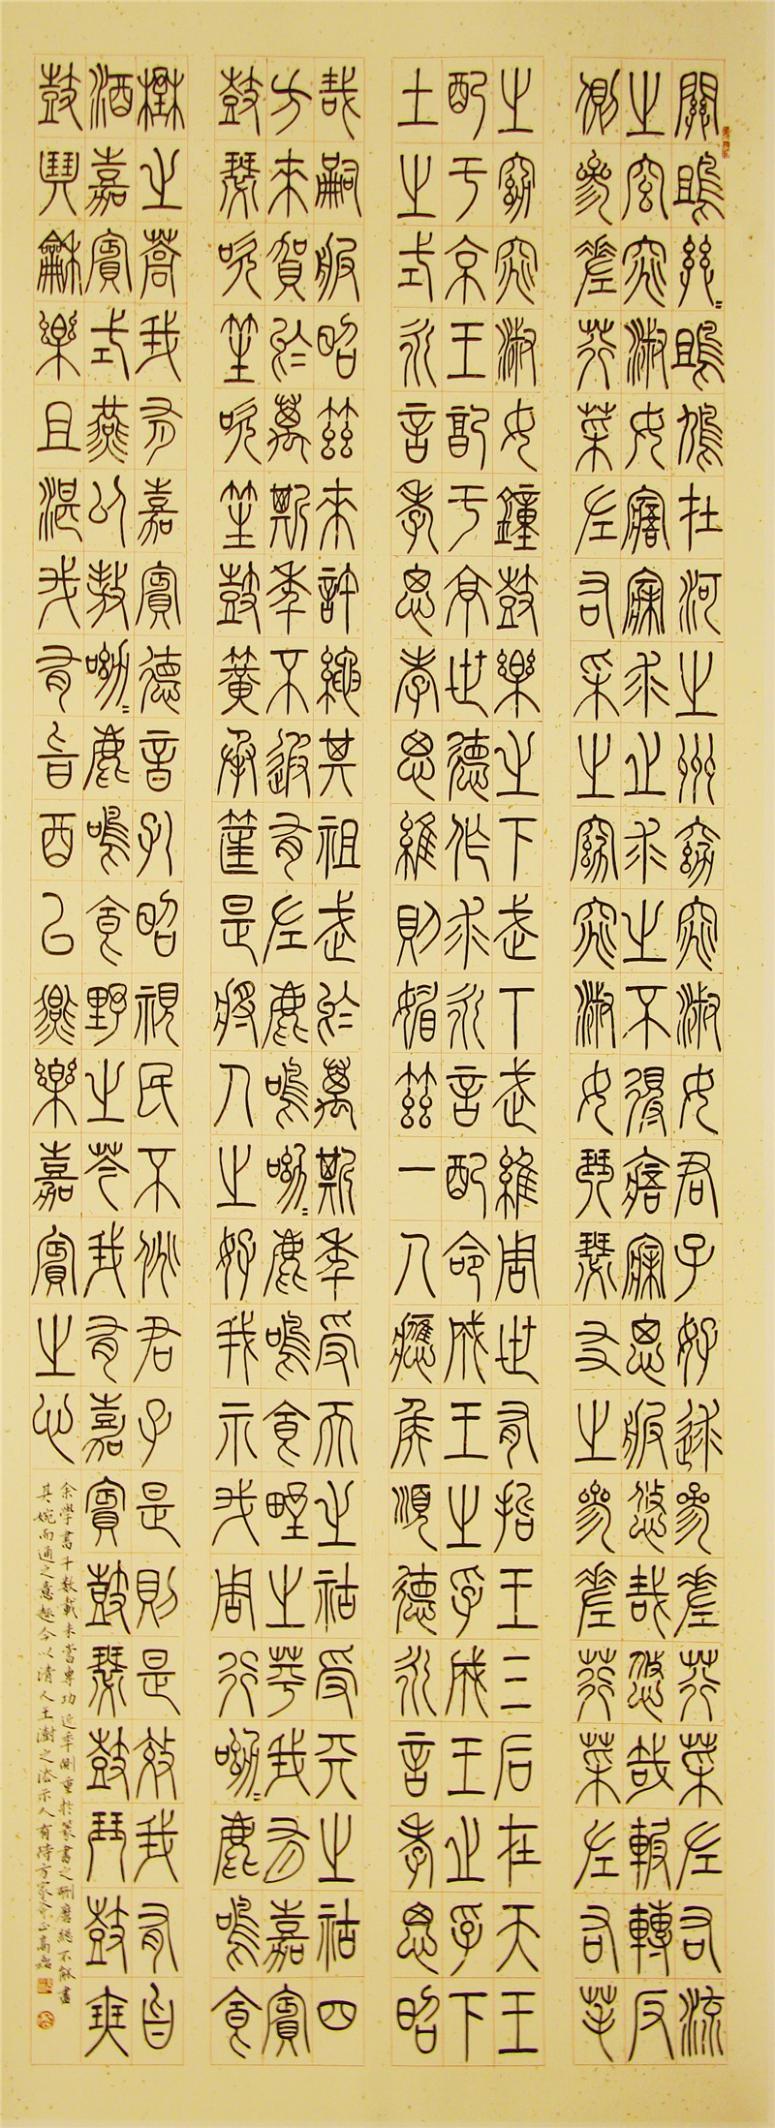 關雎關〻雎鳩在河之州窈窕淑女君子好逑參差荇菜左右流
之窈窕淑女寤寐求之求之不得寤寐思服悠哉悠哉輾轉反
側參差荇菜左右采之窈窕淑女琴瑟友之參差荇菜左右芼
之窈窕淑女鐘鼓樂之下武下武維周世有哲王三后在天王
配于京王配于京世德作求永言配命成王之孚成王之孚下
土之式永言孝思孝思維則媚茲一人應侯順德永言孝思昭
哉嗣服昭茲來許繩其祖武於萬斯年受天之祜受天之祜四
方來賀於萬斯年不遐有左鹿鳴呦〻鹿鳴食野之苹我有嘉賓
鼓瑟吹笙吹笙鼓簧承筐是將人之好我示我周行呦〻鹿鳴食
野之蒿我有嘉賓德音孔昭視民不恌君子是則是效我有旨
酒嘉賓式燕以敖呦〻鹿鳴食野之芩我有嘉賓鼓瑟鼓琴鼓瑟
鼓琴龢樂且湛我有旨酒以燕樂嘉賓之心
余學書十數載未嘗專功近年側重於篆書之研磨總不解盡
其婉而通之意趣今以清人王澍之法示人有待方家正高